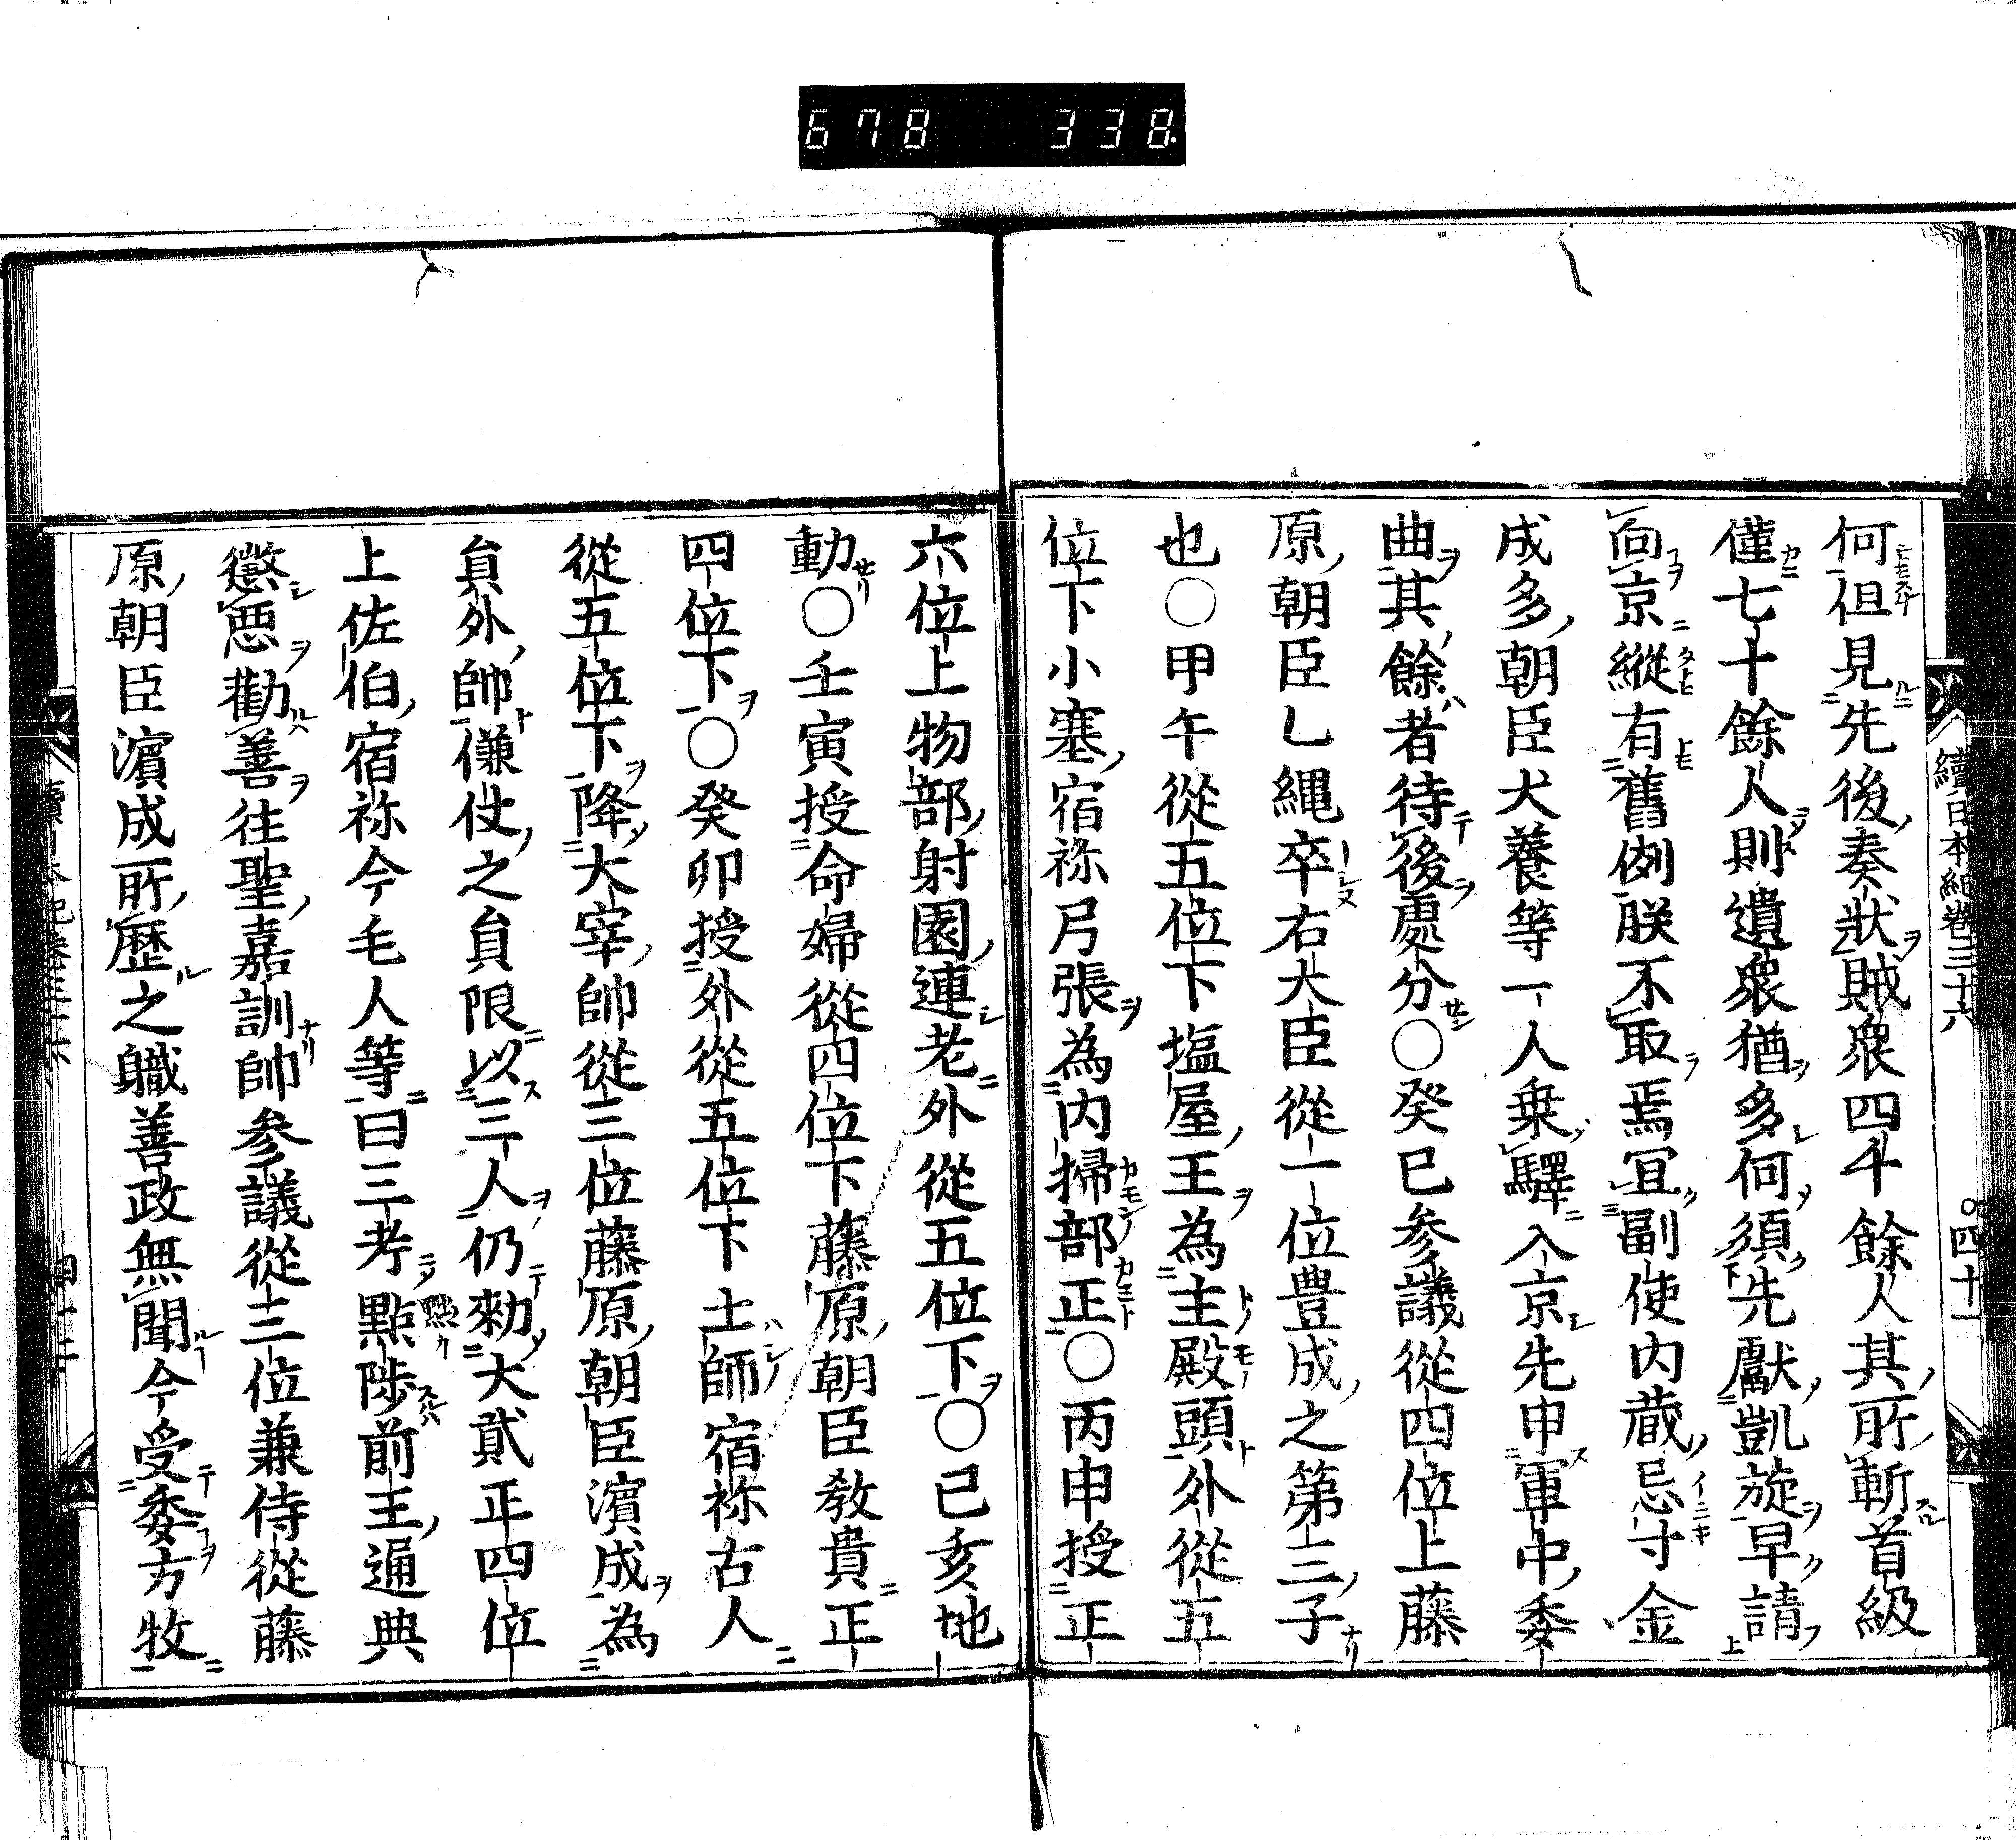 678 338
續日本紀卷三十六 ○四十一
何但見先後奏狀賊衆四千餘人其所斬首級
僅七十餘人則遺衆猶多何須先獻凱旋早請
向京縱有舊例朕不取焉冝副使内藏忌寸金
成多朝臣犬養等一人乗驛入京先申軍中委
曲其餘者待後處分○癸巳參議從四位上藤
原朝臣乚縄卒右大臣從一位豊成之第三子
也○甲午從五位下塩屋王為主殿頭外從五
位下小塞宿祢弓張為内掃部正○丙申授正
六位上物部射園連老外從五位下○己亥地
動○壬寅授命婦從四位下藤原朝臣教貴正
四位下○癸卯授外從五位下土師宿祢古人
從五位下降大宰帥從三位藤原朝臣濱成為
負外帥傔仗之負限以三人仍勅大貳正四位
上佐伯宿祢今毛人等曰三考黜陟前王通典
懲悪勸善往聖嘉訓帥参議從三位兼侍從藤
原朝臣濱成所歴之職善政無聞今受委方牧